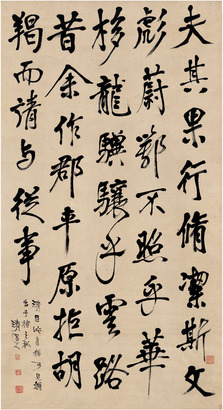 夫其果行脩潔斯文
彪蔚鄂不照乎華
柊龍驥驤乎雲路
昔余作郡平原拒胡
羯而請与從事